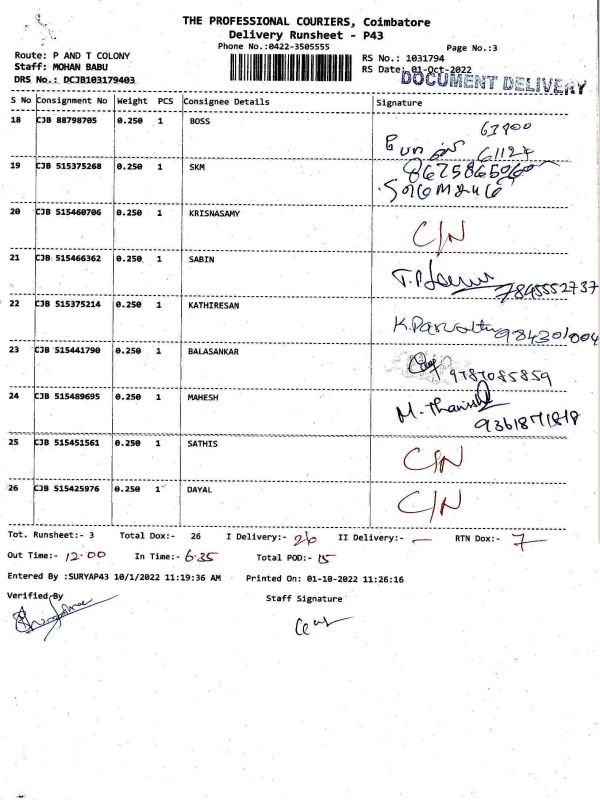 THE PROFESSIONAL COURIERS, Coimbatore
Delivery Runsheet - P43
Phone No.:0422-3505555
Page No.:3
Route: P AND T COLONY
RS No.: 1031794
Staff: MOHAN BABU
RS Date: 01-Oct-2022
DRS No.: DCJB103179403
DOCUMENT DELIVERY
S No Consignment No Weight PCS Consignee Details Signature
18 CJB 88798705 0.250 1 BOSS
61124
19 CJB 515375268 0.250 1 SKM
20 CJB 515460706 0.250 1 KRISNASAMY C/N
21 CJB 515466362 0.250 1 SABIN
7845552737
22 CJB 515375214 0.250 1 KATHIRESAN
K.Parvathy 984301004
23 CJB 515441790 0.250 1 BALASANKAR
9787085859
24 CJB 515489695 0.250 1 MAHESH
9361871818
25 CJB 515451561 0.250 1 SATHIS C/N
26 CJB 515425976 0.250 1 DAYAL C/N
Tot. Runsheet:- 3 Total Dox:- 26 I Delivery:- 26 II Delivery:- — RTN Dox:- 7
Out Time:- 12.00 In Time:- 6.35 Total POD:- 15
Entered By :SURYAP43 10/1/2022 11:19:36 AM Printed On: 01-10-2022 11:26:16
Verified By Staff Signature